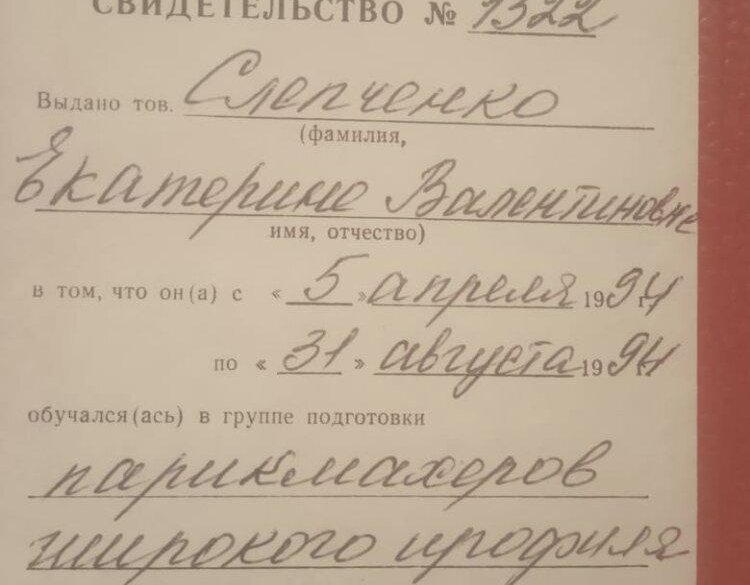 СВИДЕТЕЛЬСТВО № 1322
Выдано тов. Слепченко
(фамилия,
Екатерине Валентиновне
имя, отчество)
в том, что он(а) с «5» апреля 1994 г.
по «31» августа 1994 г.
обучался(ась) в группе подготовки
парикмахеров
широкого профиля